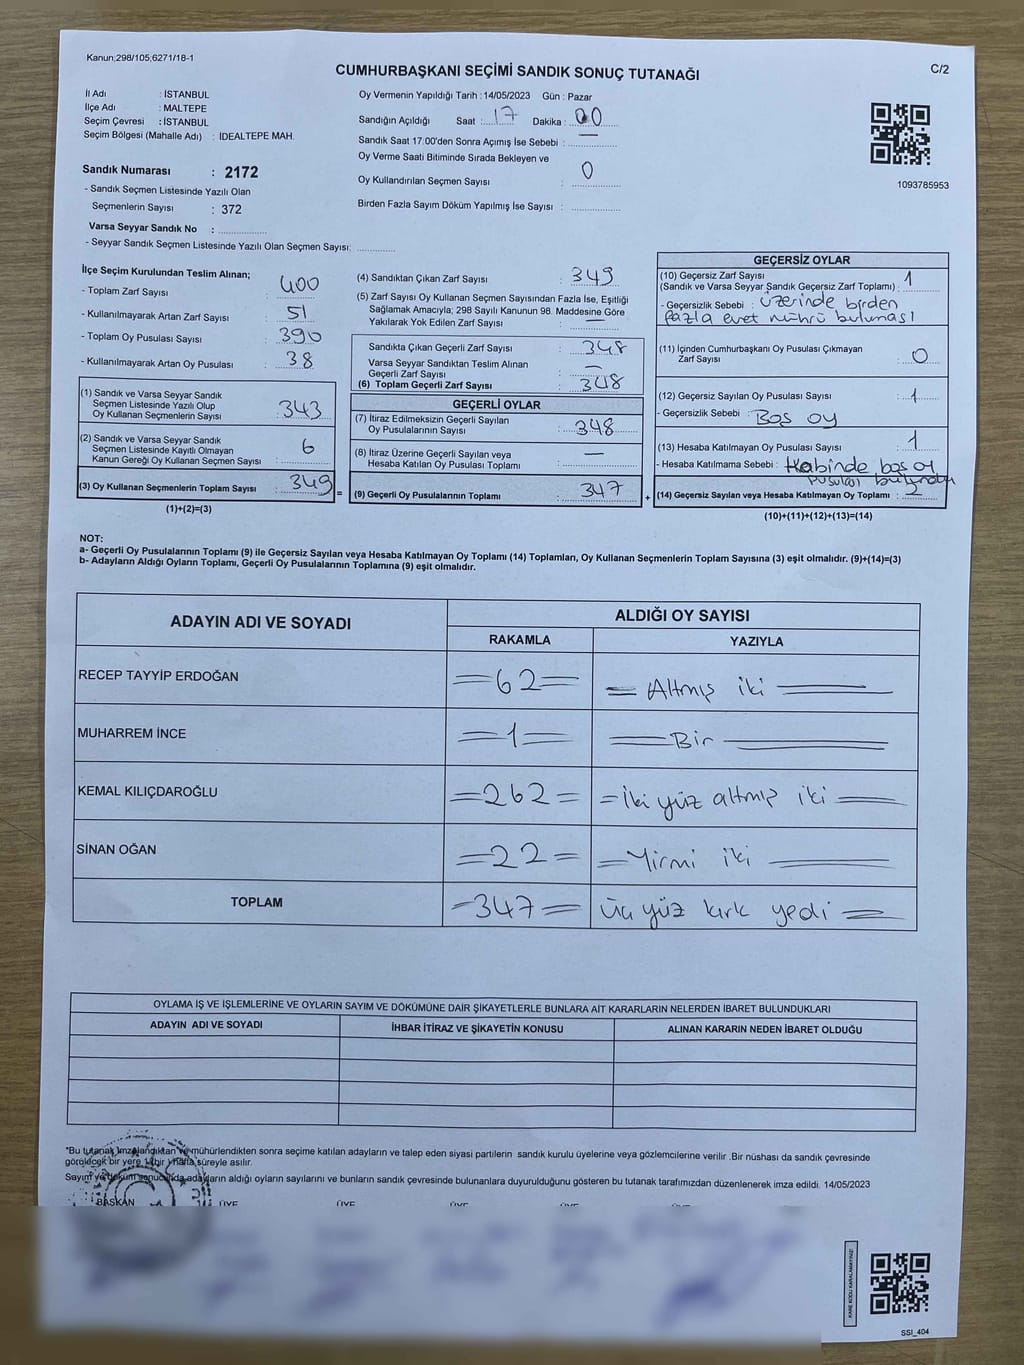 Kanun;298/105;6271/18-1
CUMHURBAŞKANI SEÇİMİ SANDIK SONUÇ TUTANAĞI
C/2
İl Adı : İSTANBUL
İlçe Adı : MALTEPE
Seçim Çevresi : İSTANBUL
Seçim Bölgesi (Mahalle Adı) : İDEALTEPE MAH.
Sandık Numarası : 2172
- Sandık Seçmen Listesinde Yazılı Olan
Seçmenlerin Sayısı : 372
Varsa Seyyar Sandık No :
- Seyyar Sandık Seçmen Listesinde Yazılı Olan Seçmen Sayısı:
Oy Vermenin Yapıldığı Tarih : 14/05/2023 Gün : Pazar
Sandığın Açıldığı Saat : 17 Dakika : 00
Sandık Saat 17:00'den Sonra Açımış İse Sebebi : —
Oy Verme Saati Bitiminde Sırada Bekleyen ve
Oy Kullandırılan Seçmen Sayısı : 0
Birden Fazla Sayım Döküm Yapılmış İse Sayısı :
1093785953
İlçe Seçim Kurulundan Teslim Alınan;
- Toplam Zarf Sayısı : 400
- Kullanılmayarak Artan Zarf Sayısı : 51
- Toplam Oy Pusulası Sayısı : 390
- Kullanılmayarak Artan Oy Pusulası : 38
(1) Sandık ve Varsa Seyyar Sandık
Seçmen Listesinde Yazılı Olup
Oy Kullanan Seçmenlerin Sayısı : 343
(2) Sandık ve Varsa Seyyar Sandık
Seçmen Listesinde Kayıtlı Olmayan
Kanun Gereği Oy Kullanan Seçmen Sayısı : 6
(3) Oy Kullanan Seçmenlerin Toplam Sayısı : 349
(1)+(2)=(3)
=
(4) Sandıktan Çıkan Zarf Sayısı : 349
(5) Zarf Sayısı Oy Kullanan Seçmen Sayısından Fazla İse, Eşitliği
Sağlamak Amacıyla; 298 Sayılı Kanunun 98. Maddesine Göre
Yakılarak Yok Edilen Zarf Sayısı : —
Sandıkta Çıkan Geçerli Zarf Sayısı : 348
Varsa Seyyar Sandıktan Teslim Alınan
Geçerli Zarf Sayısı : —
(6) Toplam Geçerli Zarf Sayısı : 348
GEÇERLİ OYLAR
(7) İtiraz Edilmeksizin Geçerli Sayılan
Oy Pusulalarının Sayısı : 348
(8) İtiraz Üzerine Geçerli Sayılan veya
Hesaba Katılan Oy Pusulası Toplamı : —
(9) Geçerli Oy Pusulalarının Toplamı : 347
+
GEÇERSİZ OYLAR
(10) Geçersiz Zarf Sayısı
(Sandık ve Varsa Seyyar Sandık Geçersiz Zarf Toplamı) : 1
- Geçersizlik Sebebi : üzerinde birden
fazla evet mührü bulunması
(11) İçinden Cumhurbaşkanı Oy Pusulası Çıkmayan
Zarf Sayısı : 0
(12) Geçersiz Sayılan Oy Pusulası Sayısı : 1
- Geçersizlik Sebebi : Boş oy
(13) Hesaba Katılmayan Oy Pusulası Sayısı : 1
- Hesaba Katılmama Sebebi : Kabinde boş oy
pusulası bulundu
(14) Geçersiz Sayılan veya Hesaba Katılmayan Oy Toplamı : 2
(10)+(11)+(12)+(13)=(14)
NOT:
a- Geçerli Oy Pusulalarının Toplamı (9) ile Geçersiz Sayılan veya Hesaba Katılmayan Oy Toplamı (14) Toplamları, Oy Kullanan Seçmenlerin Toplam Sayısına (3) eşit olmalıdır. (9)+(14)=(3)
b- Adayların Aldığı Oyların Toplamı, Geçerli Oy Pusulalarının Toplamına (9) eşit olmalıdır.
ADAYIN ADI VE SOYADI
ALDIĞI OY SAYISI
RAKAMLA YAZIYLA
RECEP TAYYİP ERDOĞAN =62= = Altmış iki =
MUHARREM İNCE =1= = Bir =
KEMAL KILIÇDAROĞLU =262= = İki yüz altmış iki =
SİNAN OĞAN =22= = Yirmi iki =
TOPLAM =347= Üç yüz kırk yedi =
OYLAMA İŞ VE İŞLEMLERİNE VE OYLARIN SAYIM VE DÖKÜMÜNE DAİR ŞİKAYETLERLE BUNLARA AİT KARARLARIN NELERDEN İBARET BULUNDUKLARI
ADAYIN ADI VE SOYADI İHBAR İTİRAZ VE ŞİKAYETİN KONUSU ALINAN KARARIN NEDEN İBARET OLDUĞU
*Bu tutanak imzalandıktan ve mühürlendikten sonra seçime katılan adayların ve talep eden siyasi partilerin sandık kurulu üyelerine veya gözlemcilerine verilir .Bir nüshası da sandık çevresinde
görülecek bir yere 1 (bir) hafta süreyle asılır.
Sayım ve döküm sonucunda adayların aldığı oyların sayılarını ve bunların sandık çevresinde bulunanlara duyurulduğunu gösteren bu tutanak tarafımızdan düzenlenerek imza edildi. 14/05/2023
BAŞKAN ÜYE ÜYE ÜYE ÜYE
KARE KODU KARALAMAYINIZ!
SSI_404